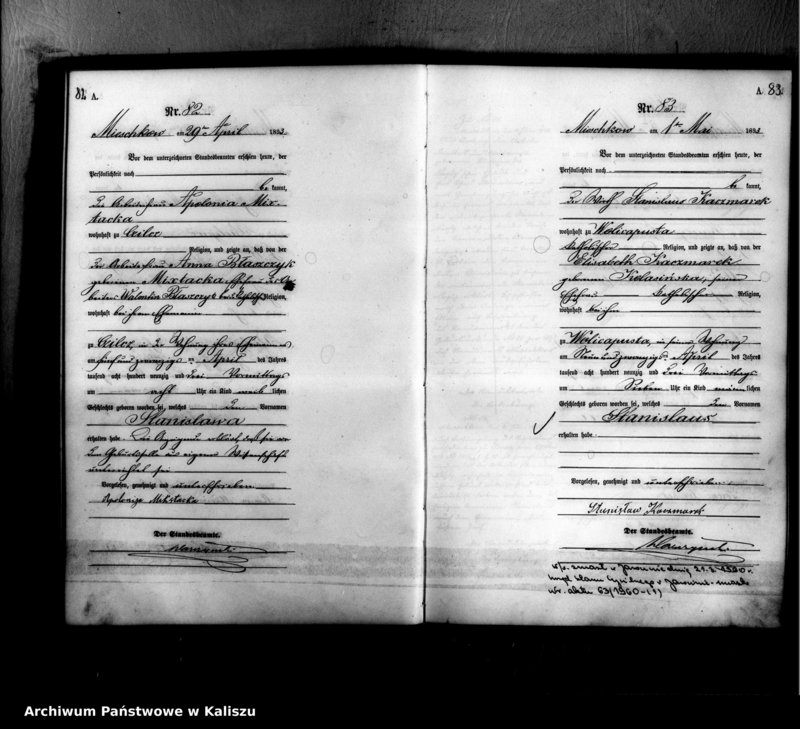 82 A.
Nr. 82
Mieschkow am 29ten April 1893
Vor dem unterzeichneten Standesbeamten erschien heute, der
Persönlichkeit nach
be kannt,
Die Arbeiterfrau Apolonia Mix-
tacka
wohnhaft zu Cielcz
Religion, und zeigte an, daß von der
Die Arbeiterfrau Anna Błaszczyk
geborenen Mixtacka, Ehefrau des Ar-
beiters Valentin Błaszczyk Religion,
wohnhaft bei ihrem Ehemanne
zu Cielcz, in der Wohnung ihres Ehemannes
am fünfundzwanzigsten April des Jahres
tausend acht hundert neunzig und drei Vormittags
um acht Uhr ein Kind weib lichen
Geschlechts geboren worden sei, welches den Vornamen
Stanislawa
erhalten habe. Die Anzeigende erklärte, daß sie von
dem Geburtsfalle aus eigener Wissenschaft
unterrichtet sei
Vorgelesen, genehmigt und unterschrieben
Apolonija
Der Standesbeamte.
A. 83
Nr. 83
Mieschkow am 1ten Mai 1893
Vor dem unterzeichneten Standesbeamten erschien heute, der
Persönlichkeit nach
be kannt,
Der Stanislaus Kaczmarek
wohnhaft zu Wolicapusta
katholischer Religion, und zeigte an, daß von der
Elisabeth Kaczmarek
geborenen Kolasińska, seiner
Ehefrau katholischer Religion,
wohnhaft bei ihm
zu Wolicapusta, in seiner Wohnung
am neunundzwanzigsten April des Jahres
tausend acht hundert neunzig und drei Vormittags
um sieben Uhr ein Kind männ lichen
Geschlechts geboren worden sei, welches den Vornamen
Stanislaus
erhalten habe.
Vorgelesen, genehmigt und unterschrieben
Stanisław Kaczmarek
Der Standesbeamte.
w/w. zmarł w Jarocinie dnia 21.3.1960 r.
Urząd Stanu Cywilnego w Jarocinie
Nr. aktu 63/1960
Archiwum Państwowe w Kaliszu